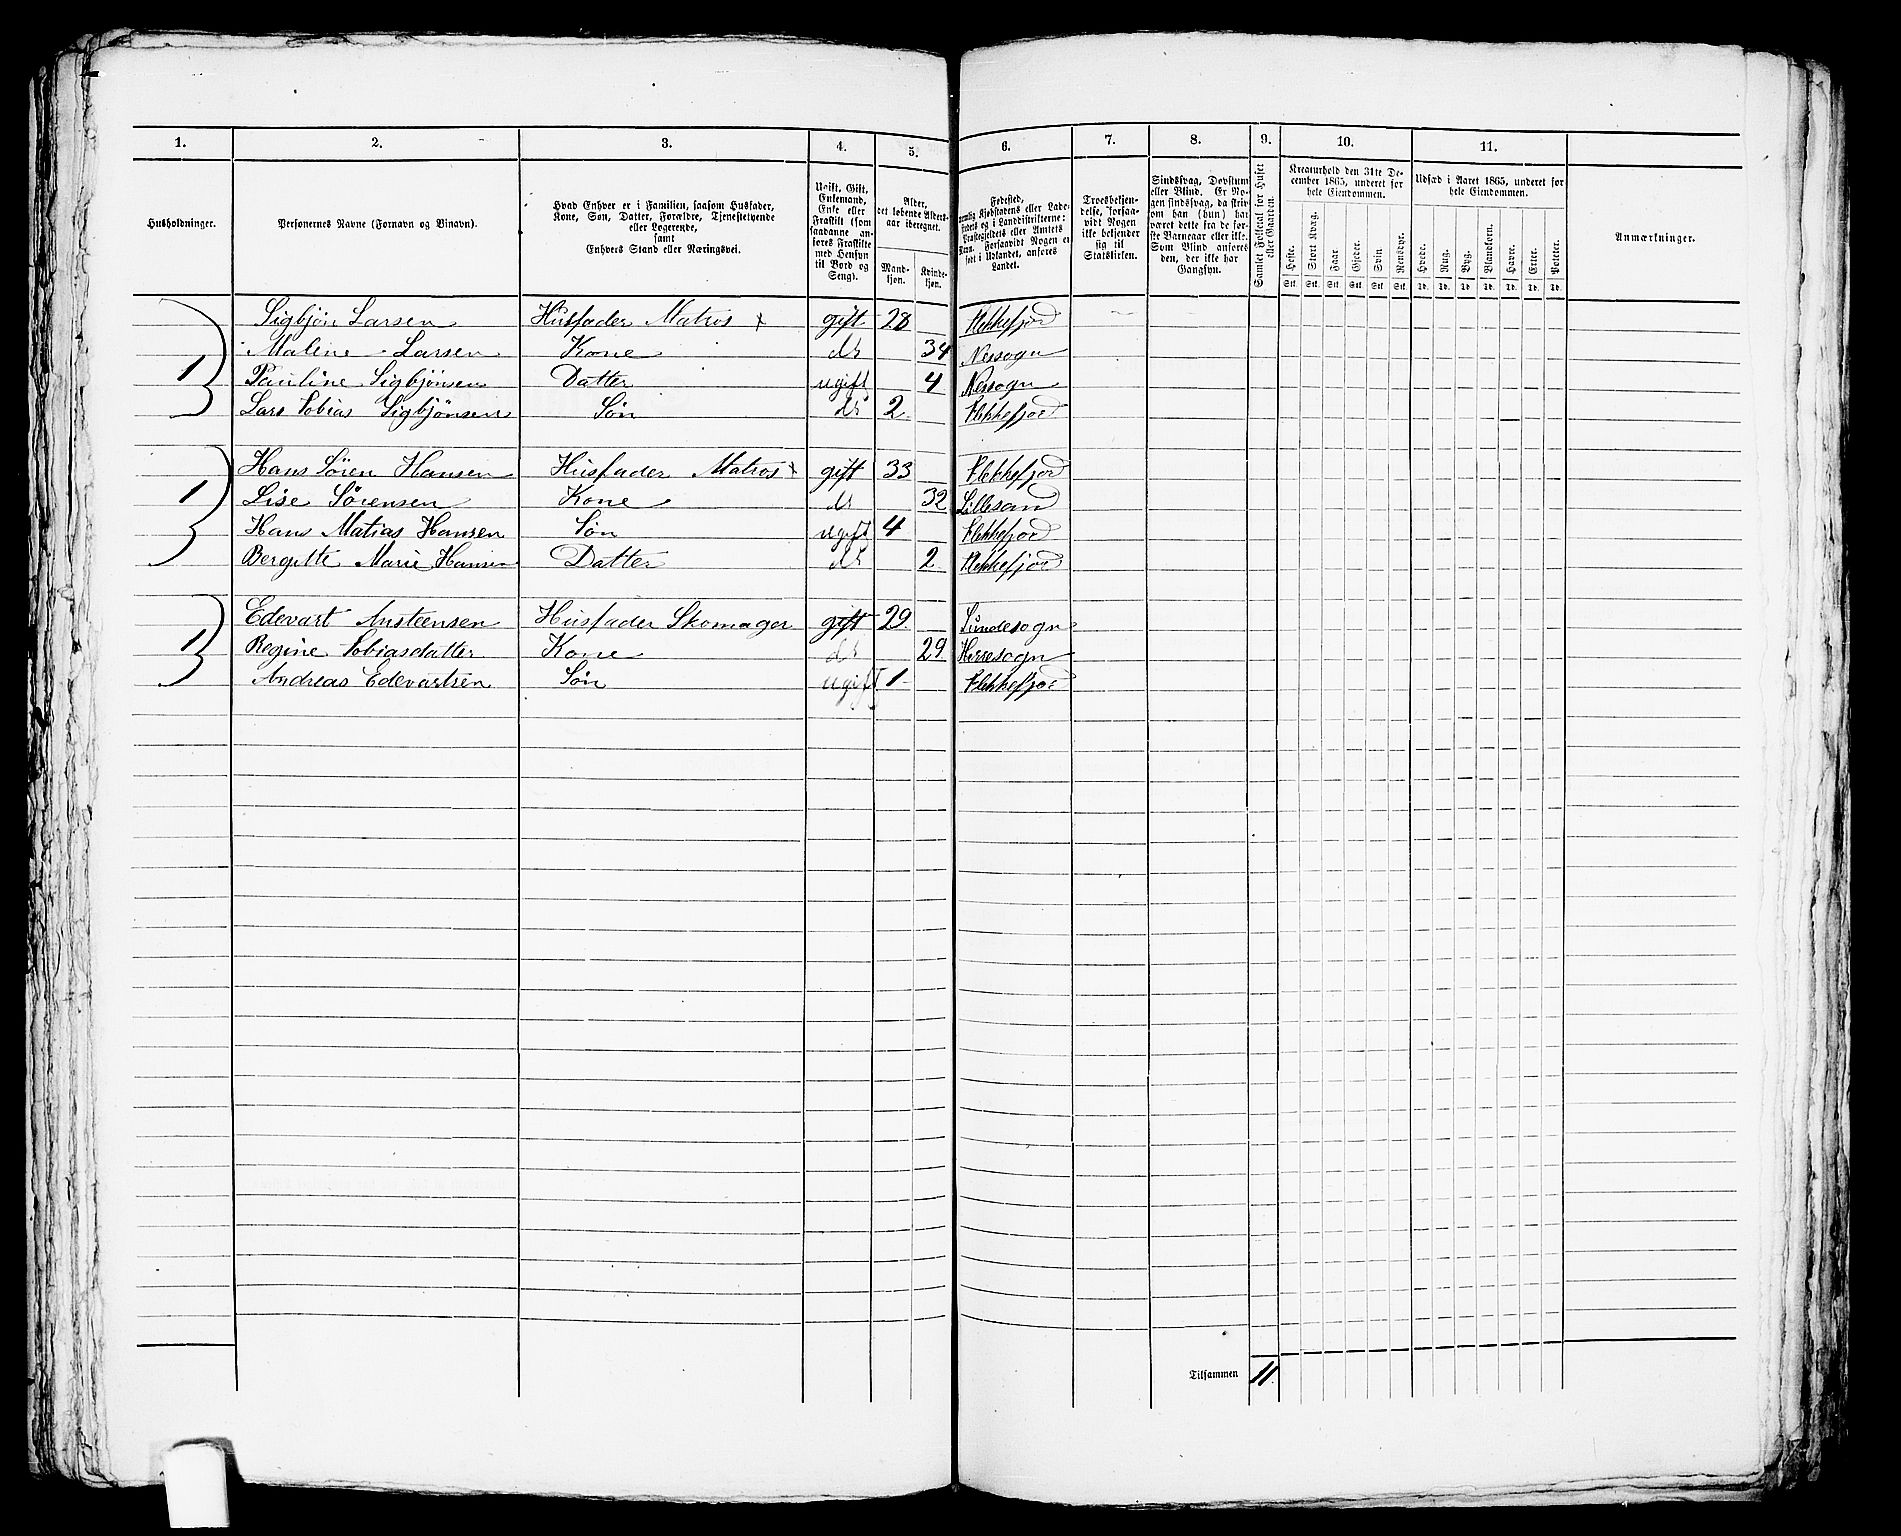 1. 2. 3. 4. 5. 6. 7. 8. 9. 10. 11.
Husholdninger.
Personernes Navne (Fornavn og Binavn).
Hvad Enhver er i Familien, saasom Husfader,
Kone, Søn, Datter, Forældre, Tjenestetyende
eller Logerende,
samt
Enhvers Stand eller Næringsvei.
Ugift, Gift,
Enkemand,
Enke eller
Fraskilt (som
saadanne an-
føres Fraskilte
med Hensyn
til Bord og
Seng).
Alder,
det løbende Alders-
aar iberegnet.
Mand-
kjøn.
Kvinde-
kjøn.
Fødested,
nemlig Kjøbstadens eller Lade-
stedets og i Landdistrikterne:
Præstegjeldets eller Amtets
Navn. Forsaavidt Nogen er
født i Udlandet, anføres
Landet.
Troesbekjen-
delse, forsaa-
vidt Nogen
ikke bekjender
sig til
Statskirken.
Sindssvag, Døvstum
eller Blind. Er No-
gen sindssvag, da skriv
om han (hun) har
været dette fra de før-
ste Barneaar eller ikke.
Som Blind anføres
den, der ikke har
Gangsyn.
Samlet Folketal for Huset
eller Gaarden.
Kreaturhold den 31te De-
cember 1865, underet for
hele Eiendommen.
Heste. Stort Kvæg. Faar. Gjeder. Svin. Rensdyr.
Stk. Stk. Stk. Stk. Stk. Stk.
Udsæd i Aaret 1865, underet for
hele Eiendommen.
Hvede. Rug. Byg. Blandkorn. Havre. Erter. Poteter.
Td. Td. Td. Td. Td. Td. Td.
Anmærkninger.
Sigbjøn Larsen Husfader Matros x gift 28 Flekkefjord
Maline Larsen Kone do 34 Nessogn
1 Pauline Sigbjönsen Datter ugift 4 Nessogn
Lars Tobias Sigbjønsen Søn do 2 Flekkefjord
Hans Sören Hansen Husfader Matros x gift 33 Flekkefjord
1 Lise Sörensen Kone do 32 Lillesand
Hans Matias Hansen Søn ugift 4 Flekkefjord
Bergitte Marie Hansen Datter do 2 Flekkefjord
Edevart Austeensen Husfader Skomager gift 29 Sundesogn
1 Regine Tobiasdatter Kone do 29 Herresogn
Andreas Edevartsen Søn ugift 1 Flekkefjord
Tilsammen 11